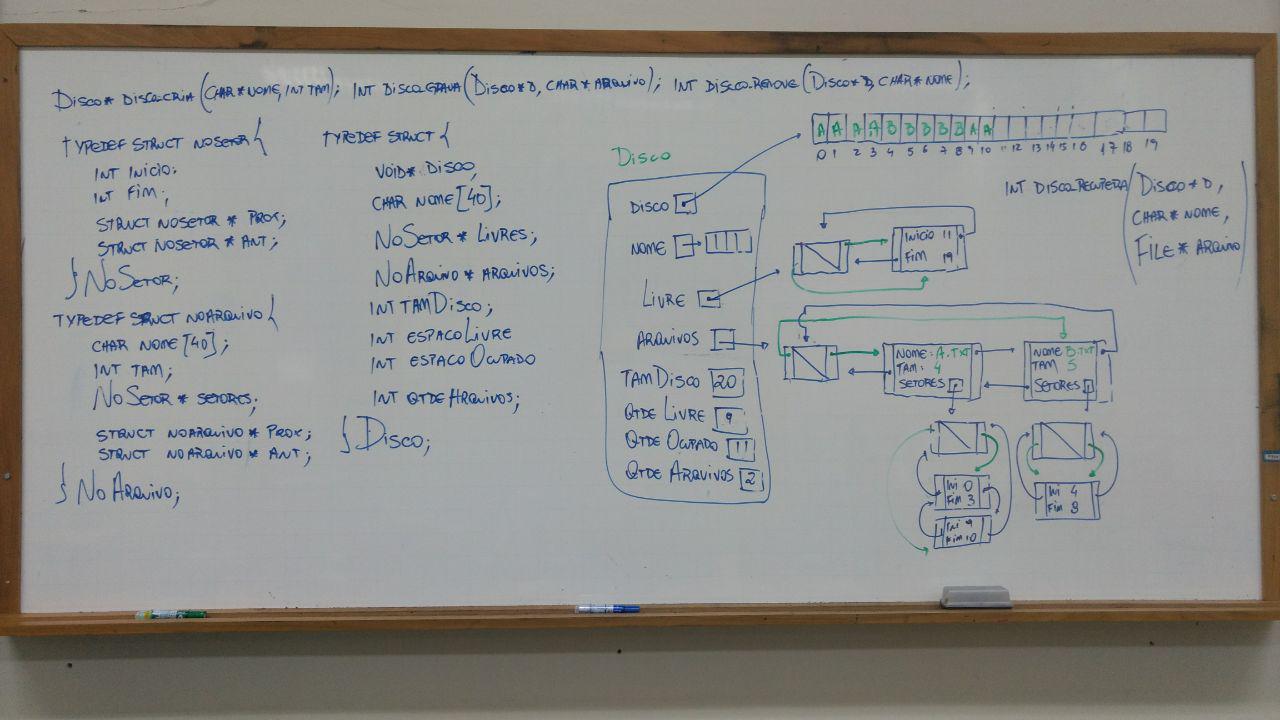 DISCO* DISCO_CRIA (CHAR* NOME, INT TAM); INT DISCO_GRAVA (DISCO* D, CHAR* ARQUIVO); INT DISCO_REMOVE (DISCO* D, CHAR* NOME);
TYPEDEF STRUCT NOSETOR {
INT INICIO;
INT FIM;
STRUCT NOSETOR * PROX;
STRUCT NOSETOR * ANT;
} NOSETOR;
TYPEDEF STRUCT NOARQUIVO {
CHAR NOME [40];
INT TAM;
NOSETOR * SETORES;
STRUCT NOARQUIVO * PROX;
STRUCT NOARQUIVO * ANT;
} NOARQUIVO;
TYPEDEF STRUCT {
VOID* DISCO;
CHAR NOME [40];
NOSETOR * LIVRES;
NOARQUIVO * ARQUIVOS;
INT TAMDISCO;
INT ESPACOLIVRE
INT ESPACOOCUPADO
INT QTDEARQUIVOS;
} DISCO;
DISCO
DISCO
NOME
LIVRE
ARQUIVOS
TAMDISCO 20
QTDE LIVRE 9
QTDE OCUPADO 11
QTDE ARQUIVOS 2
A A A A B B B B B A A
0 1 2 3 4 5 6 7 8 9 10 11 12 13 14 15 16 17 18 19
INT DISCO_RECUPERA (DISCO * D,
CHAR * NOME,
FILE * ARQUIVO)
INICIO 11
FIM 19
NOME: A.TXT
TAM: 4
SETORES
NOME B.TXT
TAM 5
SETORES
INI 0
FIM 3
INI 9
FIM 10
INI 4
FIM 8